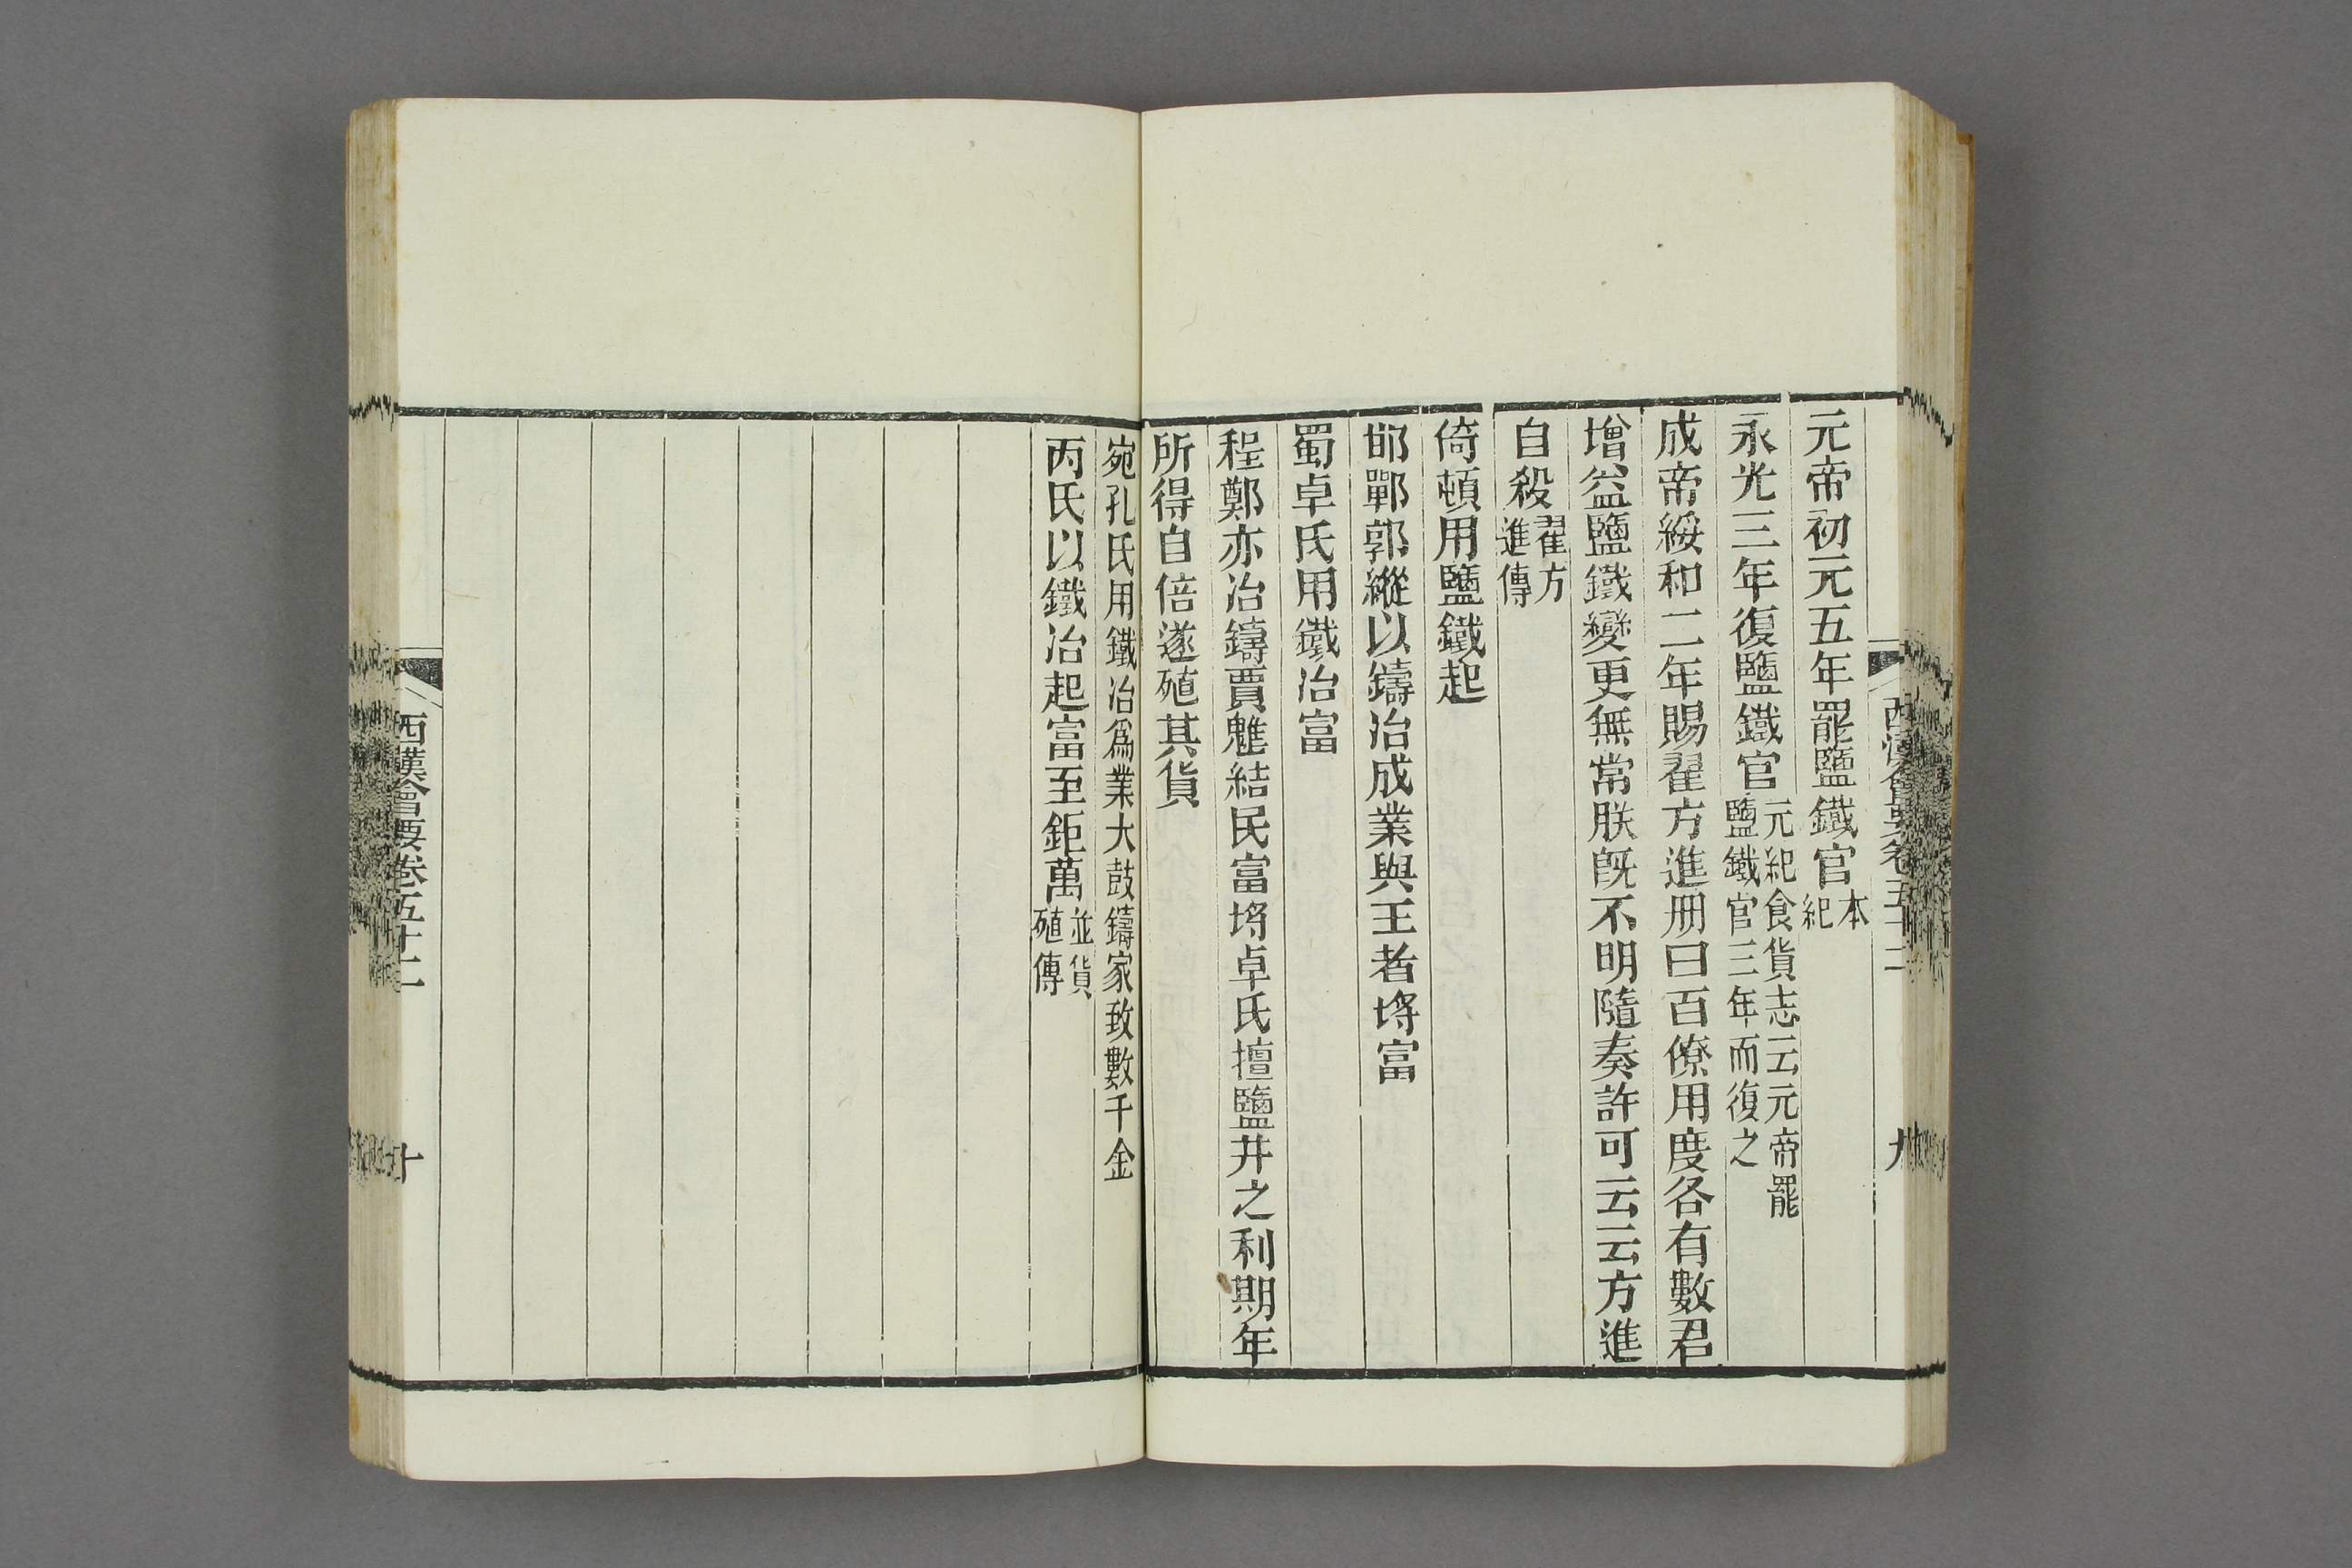 元帝初元五年罷鹽鐵官本紀
永光三年復鹽鐵官元紀食貨志云元帝罷鹽鐵官三年而復之
成帝綏和二年賜翟方進册曰百僚用度各有數君
增益鹽鐵變更無常朕旣不明隨奏許可云云方進
自殺翟方進傳
倚頓用鹽鐵起
邯鄲郭縱以鑄冶成業與王者埓富
蜀卓氏用鐵冶富
程鄭亦冶鑄賈魋結民富埓卓氏擅鹽井之利期年
所得自倍遂殖其貨
西漢會要卷五十二
九
宛孔氏用鐵冶爲業大鼓鑄家致數千金
丙氏以鐵冶起富至鉅萬並貨殖傳
西漢會要卷五十二
十